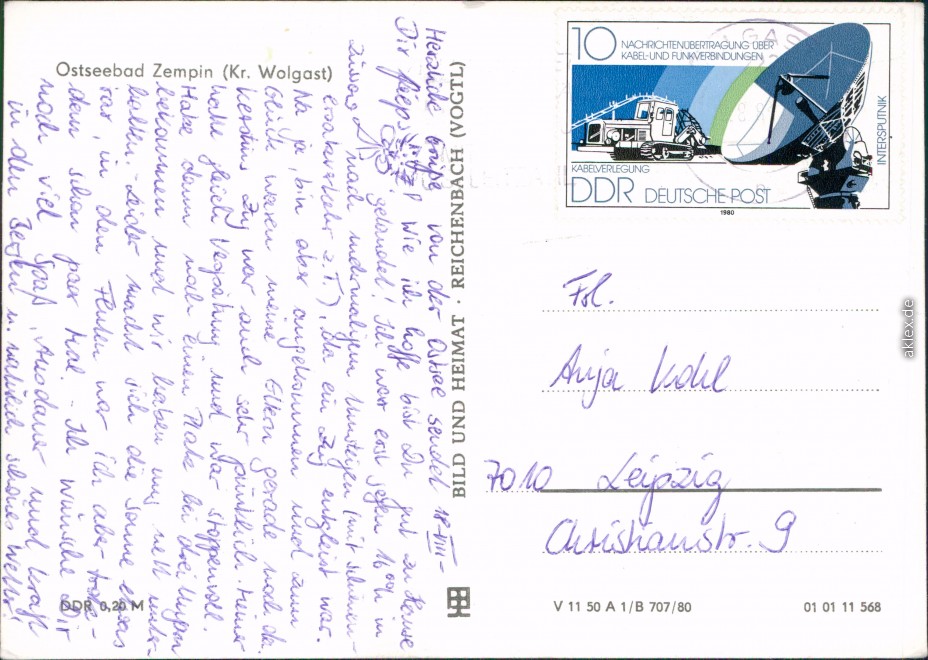 Ostseebad Zempin (Kr. Wolgast)
18.VIII.
Herzliche Grüße von der Ostsee sendet
Dir
! Wie ich hoffe bist Du gut zu Hause
gelandet! Ich war erst gegen 16 00h in
und mehrmaligem Umsteigen (mit Schienen-
ersatzverkehr z.T.), da ein Zug entgleist war.
Na ja, bin aber angekommen und zum
Glück waren meine Eltern gerade noch da.
Zug war auch sehr pünktlich. Meiner
hatte gleich Verspätung und war stoppenvoll.
Habe dann noch einen Platz bei drei Ungarn
bekommen und wir haben uns nett unter-
halten. - Leider macht sich die Sonne etwas
rar, in den Fluten war ich aber trotz-
dem schon paar Mal. - Ich wünsche Dir
noch viel Spaß, Ausdauer und Kraft
in den Bergen u. natürlich schönes Wetter!
DDR 0,20 M
BILD UND HEIMAT · REICHENBACH (VOGTL)
10
NACHRICHTENÜBERTRAGUNG ÜBER
KABEL-UND FUNKVERBINDUNGEN
INTERSPUTNIK
KABELVERLEGUNG
DDR DEUTSCHE POST
1980
Frl.
Anja Kohl
7010 Leipzig
Christianstr. 9
V 11 50 A 1/B 707/80
01 01 11 568
aklex.de